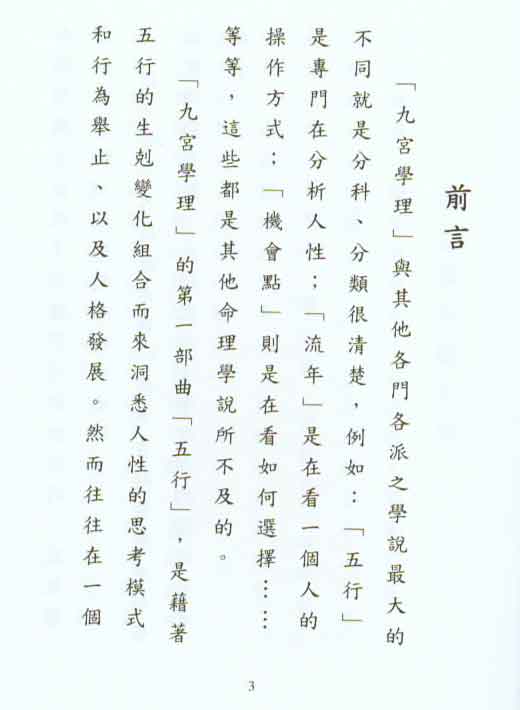 前言
「九宮學理」與其他各門各派之學說最大的
不同就是分科、分類很清楚，例如：「五行」
是專門在分析人性；「流年」是在看一個人的
操作方式；「機會點」則是在看如何選擇……
等等，這些都是其他命理學說所不及的。
「九宮學理」的第一部曲「五行」，是藉著
五行的生剋變化組合而來洞悉人性的思考模式
和行為舉止、以及人格發展。然而往往在一個
3